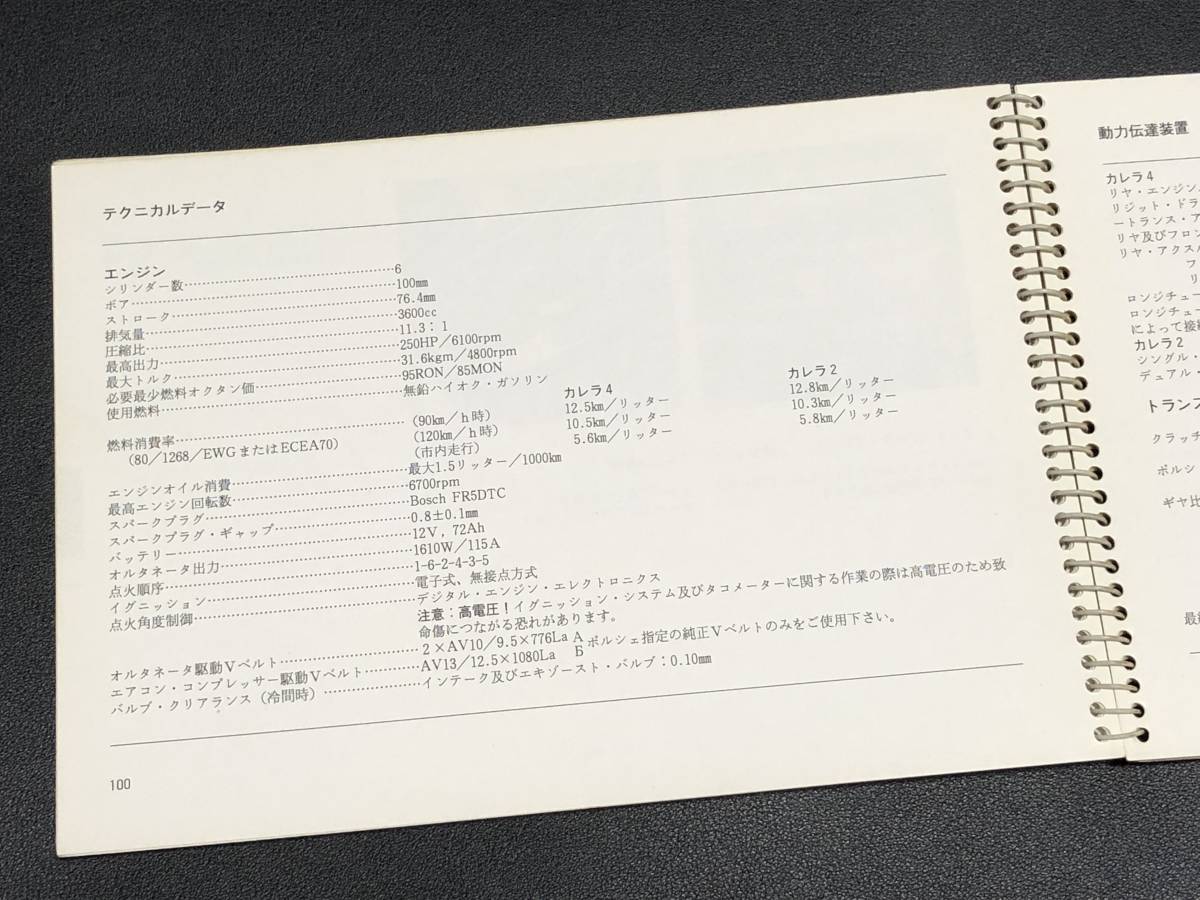 テクニカルデータ
エンジン
シリンダー数…………6
ボア…………100mm
ストローク…………76.4mm
排気量…………3600cc
圧縮比…………11.3：1
最高出力…………250HP／6100rpm
最大トルク…………31.6kgm／4800rpm
必要最少燃料オクタン価…………95RON／85MON
使用燃料…………無鉛ハイオク・ガソリン
カレラ4 カレラ2
燃料消費率…………（90km／h時） 12.5km／リッター 12.8km／リッター
（80／1268／EWGまたはECEA70） （120km／h時） 10.5km／リッター 10.3km／リッター
（市内走行） 5.6km／リッター 5.8km／リッター
エンジンオイル消費…………最大1.5リッター／1000km
最高エンジン回転数…………6700rpm
スパークプラグ…………Bosch FR5DTC
スパークプラグ・ギャップ…………0.8±0.1mm
バッテリー…………12V，72Ah
オルタネータ出力…………1610W／115A
点火順序…………1-6-2-4-3-5
イグニッション…………電子式、無接点方式
点火角度制御…………デジタル・エンジン・エレクトロニクス
注意：高電圧！イグニッション・システム及びタコメーターに関する作業の際は高電圧のため致
命傷につながる恐れがあります。
オルタネータ駆動Vベルト…………2×AV10／9.5×776La A ポルシェ指定の純正Vベルトのみをご使用下さい。
エアコン・コンプレッサー駆動Vベルト…………AV13／12.5×1080La Б
バルブ・クリアランス（冷間時）…………インテーク及びエキゾースト・バルブ：0.10mm
100
動力伝達装置
カレラ4
リヤ・エンジン
リジット・ドラ
ートランス・ア
リヤ及びフロン
リヤ・アクスル
フ
リ
ロンジチュー
ロンジチュー
によって接続
カレラ2
シングル・
デュアル・
トランス
クラッチ
ポルシ
ギヤ比
最